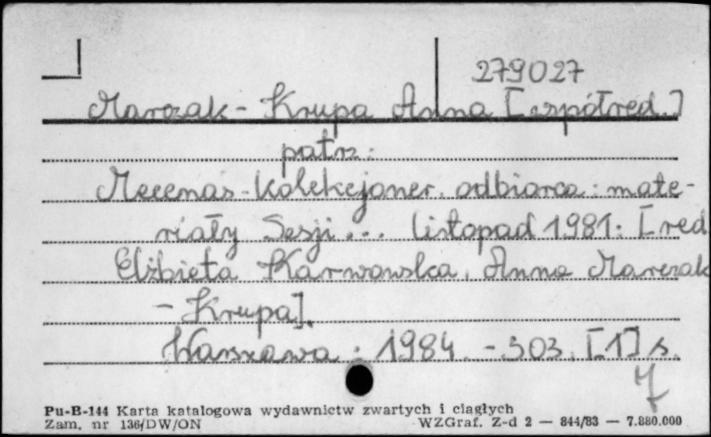 279027
Marczak - Krupa Anna [współred.]
patrz:
Mecenas - Kolekcjoner. odbiorca: mate-
riały Sesji ... listopad 1981: [red
Elżbieta Karwowska, Anna Marczak
- Krupa].
Warszawa : 1984. - 303, [1] s.
Pu-B-144 Karta katalogowa wydawnictw zwartych i ciągłych
Zam. nr 136/DW/ON WZGraf. Z-d 2 — 844/83 — 7.880.000